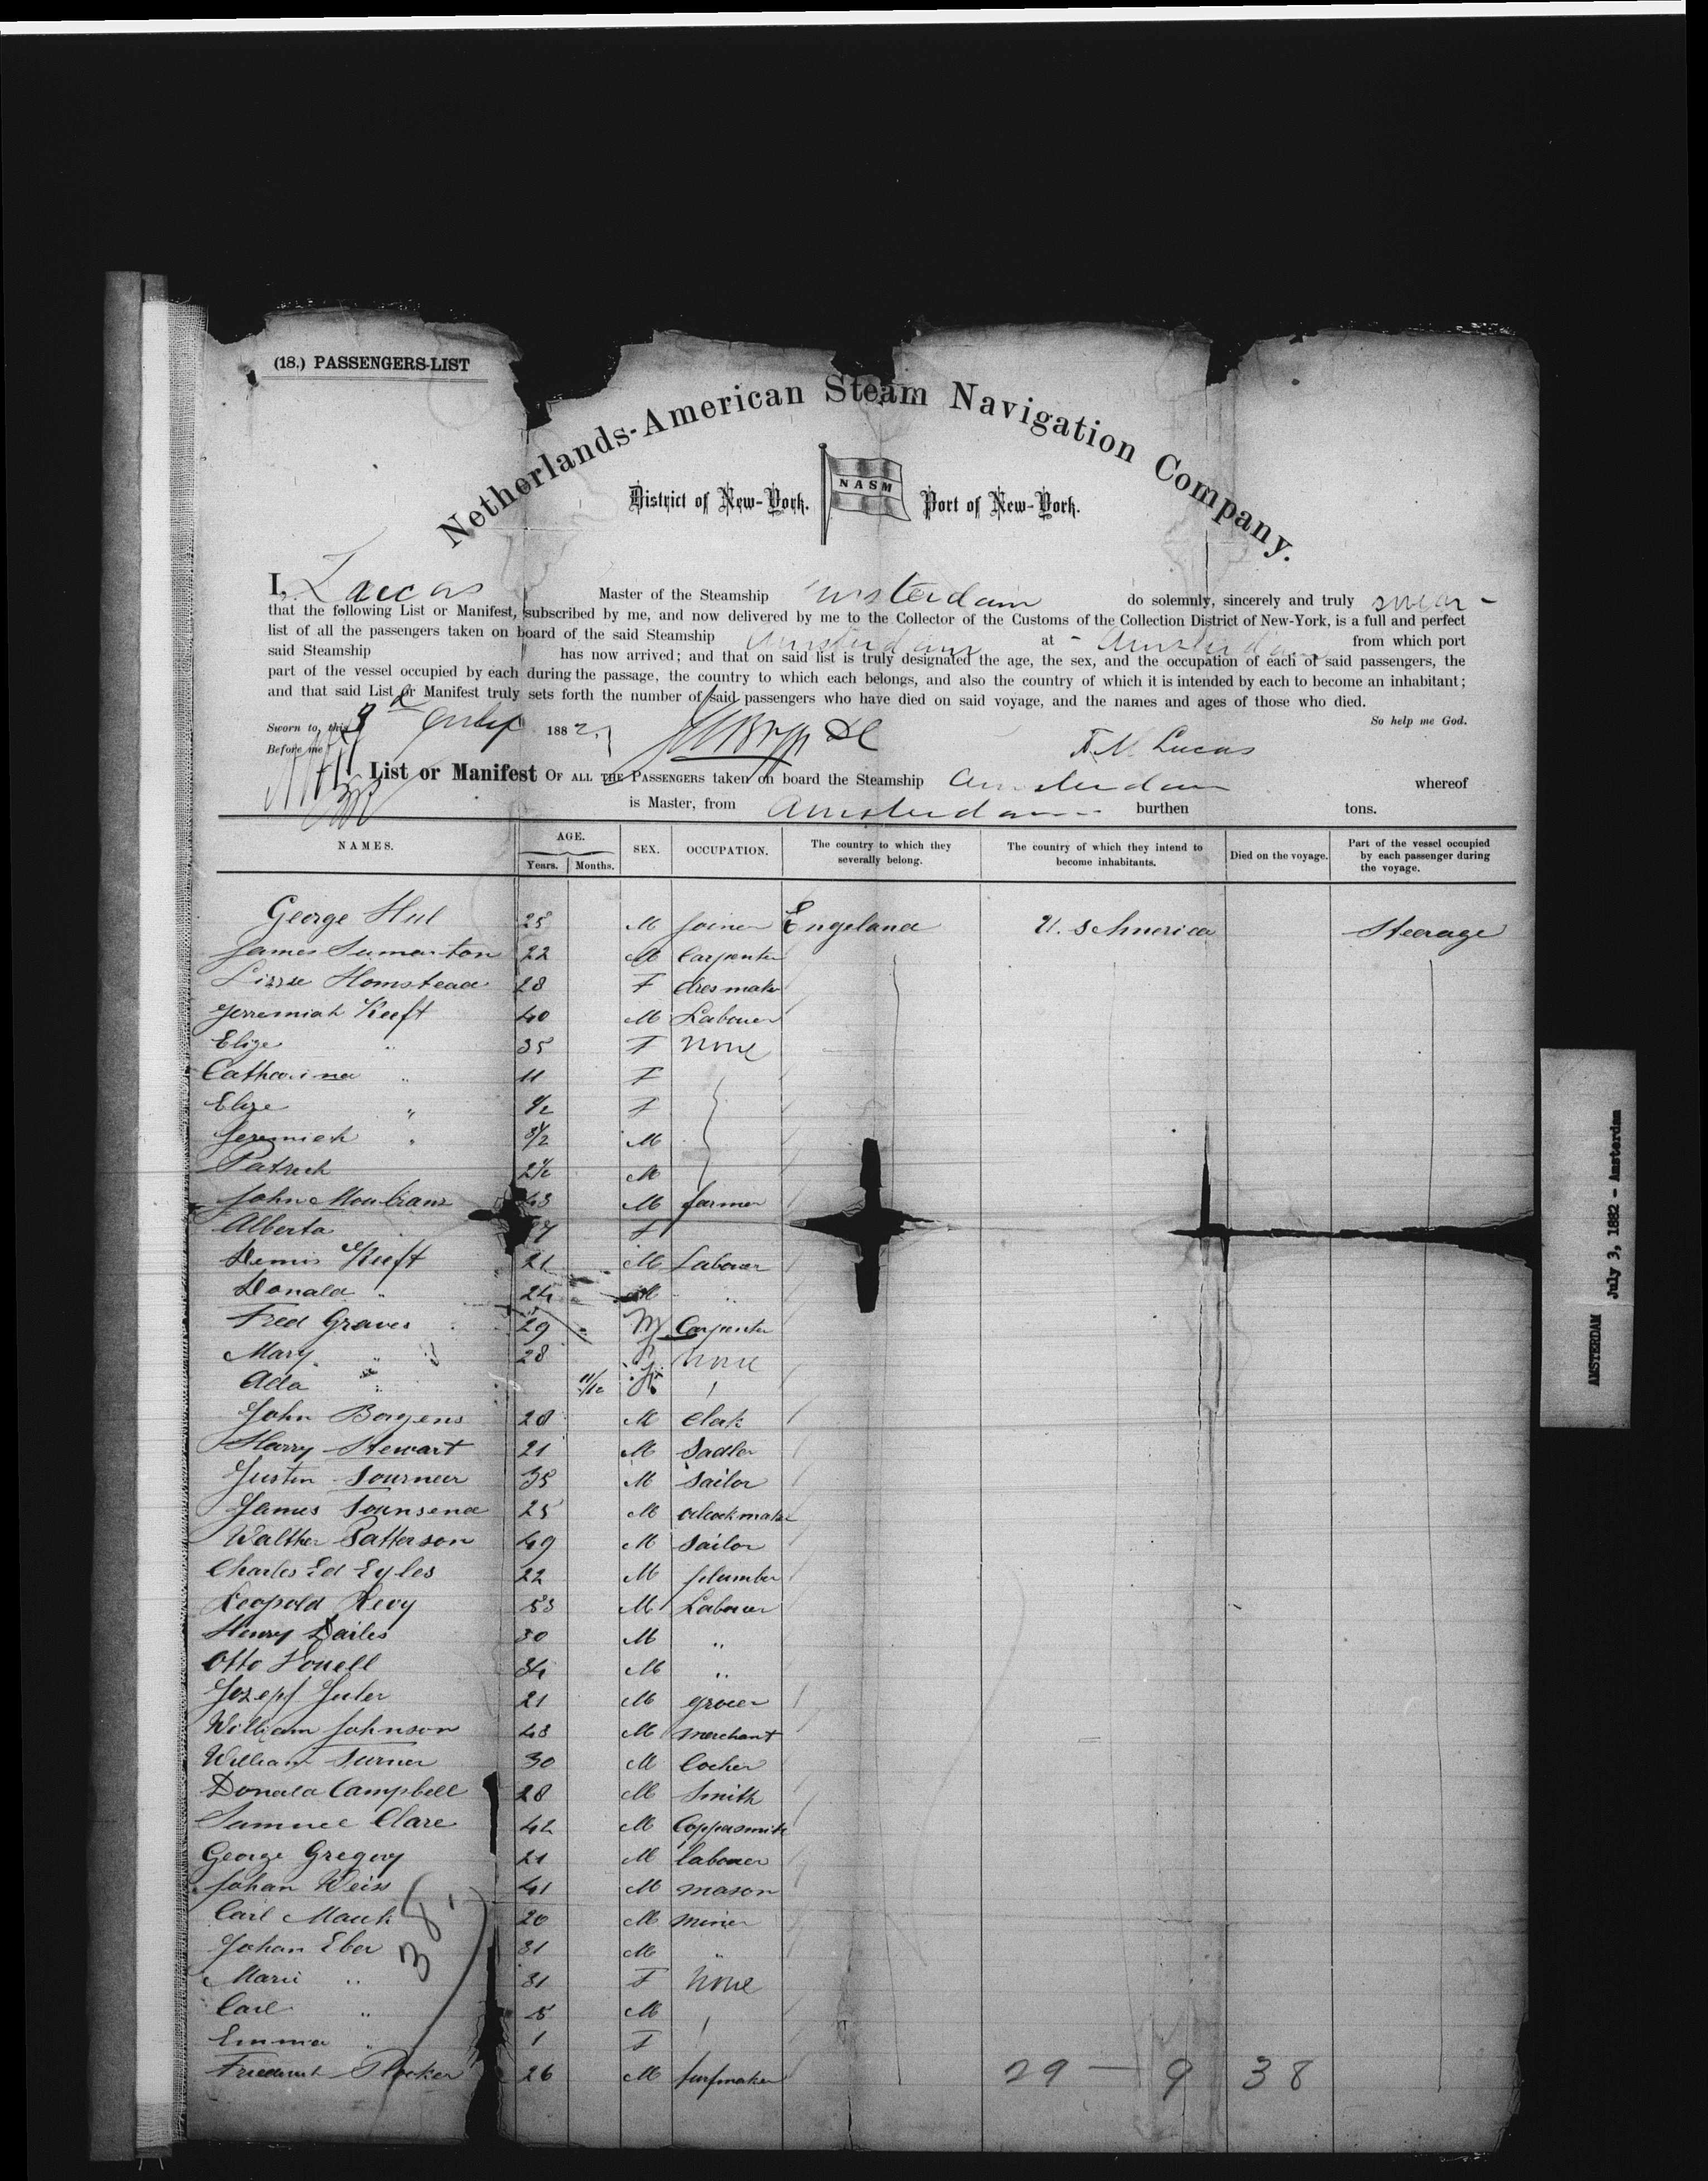 (18.) PASSENGERS-LIST
Netherlands-American Steam Navigation Company.
District of New-York. NASM Port of New-York.
I, Lucas Master of the Steamship Amsterdam do solemnly, sincerely and truly swear -
that the following List or Manifest, subscribed by me, and now delivered by me to the Collector of the Customs of the Collection District of New-York, is a full and perfect
list of all the passengers taken on board of the said Steamship Amsterdam at - Amsterdam from which port
said Steamship has now arrived; and that on said list is truly designated the age, the sex, and the occupation of each of said passengers, the
part of the vessel occupied by each during the passage, the country to which each belongs, and also the country of which it is intended by each to become an inhabitant;
and that said List or Manifest truly sets forth the number of said passengers who have died on said voyage, and the names and ages of those who died.
Sworn to, this 3 July 1882. So help me God.
Before me Lucas
List or Manifest OF ALL THE PASSENGERS taken on board the Steamship Amsterdam whereof
is Master, from Amsterdam burthen tons.
NAMES. AGE. Years. Months. SEX. OCCUPATION. The country to which they severally belong. The country of which they intend to become inhabitants. Died on the voyage. Part of the vessel occupied by each passenger during the voyage.
George Hul 25 M Joiner Engeland U. S America Steerage
James Sumarton 22 M Carpenter
Lizzie Homstead 28 F dresmaker
Jerremiah Keeft 40 M Labouer
Elize " 35 F none
Catharina " 11 F
Elize " F
Jeremiah " M
Patrick 2½ M
John 43 M farmer
Alberta F
Dennis Keeft 21 M Labouer
Donald " 24 M "
Fred Graves 29 M Carpenter
Mary " 28 F none
Ada " F
John Borgens 28 M Clerk
Harry Stewart 21 M Sadler
Justin Tourneur 35 M Sailor
James Townsend 25 M
Walther Patterson 49 M Sailor
Charles Ed Eyles 22 M plumber
Leopold Levy 53 M Labouer
Henry Dailes 30 M "
Otto 34 M "
Jozepf Juler 21 M grocer
William Johnson 43 M merchant
William Turner 30 M
Donald Campbell 28 M Smith
Samuel Clare 42 M Coppersmith
George Gregory 21 M labouer
Johan Weiss 41 M mason
Carl Mauk 20 M miner
Johan Eber 31 M "
Marie " 31 F none
Carl " 5 M
Emma " 1 F
26 M
38
29 — 9 38
AMSTERDAM July 3, 1882 - Amsterdam